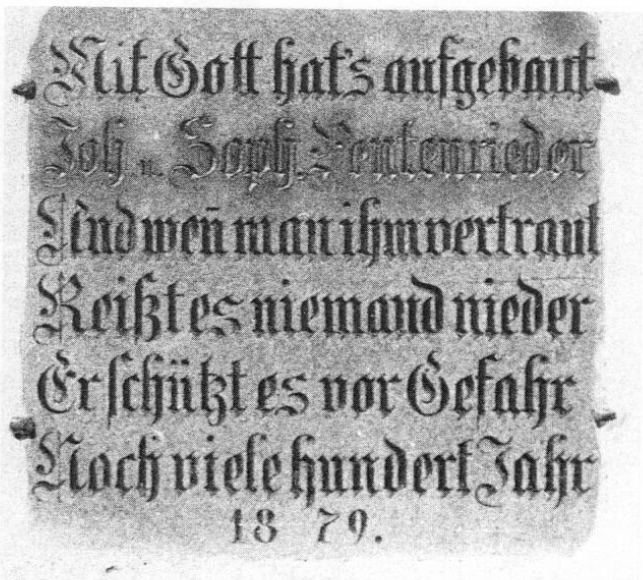 Mit Gott hat's aufgebaut
Joh. u. Soph. Pentenrieder
Und wen̄ man ihm vertraut
Reißt es niemand nieder
Er schützt es vor Gefahr
Noch viele hundert Jahr
18 79.